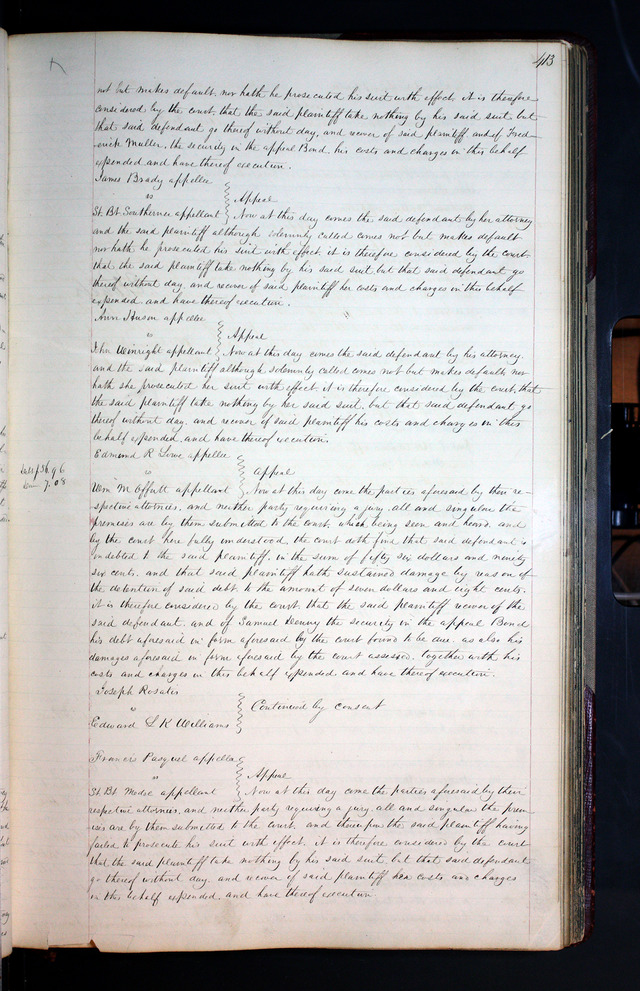 413
not but makes default, nor hath he prosecuted his suit with effect. it is therefore
considered by the court, that the said plaintiff take nothing by his said suit but
that said defendant go thereof without day, and recover of said plaintiff and of Fred-
erick Muller, the security in the appeal Bond, his costs and charges in this behalf
expended, and have thereof execution.
James Brady appellee
vs
Appeal
St. Bt. Southerner appellant Now at this day comes the said defendant by her attorney
and the said plaintiff although solemnly called comes not but makes default
nor hath he prosecuted his suit with effect it is therefore considered by the court
that the said plaintiff take nothing by his said suit but that said defendant go
thereof without day, and recover of said plaintiff her costs and charges in this behalf
expended and have thereof execution.
Ann Huson appellee
vs
Appeal
John Wainright appellant Now at this day comes the said defendant by his attorney.
and the said plaintiff although solemnly called comes not but makes default nor
hath she prosecuted her suit with effect it is therefore considered by the court, that
the said plaintiff take nothing by her said suit, but that said defendant go
thereof without day. and recover of said plaintiff his costs and charges in this
behalf expended, and have thereof execution.
Edmund R Lowe appellee
vs
Appeal
Debt $56.96
Dam 7.08
Wm M Offutt appellant Now at this day come the parties aforesaid by their re-
spective attornies, and neither party requiring a jury. all and singular the
premises are by them submitted to the court, which being seen and heard, and
by the court here fully understood, the court doth find that said defendant is
indebted to the said plaintiff, in the sum of fifty six dollars and ninety
six cents, and that said plaintiff hath sustained damage by reason of
the detention of said debt, to the amount of seven dollars and eight cents,
it is therefore considered by the court, that the said plaintiff recover of the
said defendant. and of Samuel Denny the security in the appeal Bond
his debt aforesaid in form aforesaid by the court found to be due. as also his
damages aforesaid in form aforesaid by the court assessed, together with his
costs and charges in this behalf expended, and have thereof execution.
Joseph Rosatis
vs
Continued by consent
Edward L K Williams
Francis Pasquel appellee
vs
Appeal
St. Bt. Modee appellant Now at this day come the parties aforesaid by their
respective attornies, and neither party requiring a jury. all and singular the prem-
ises are by them submitted to the court, and thereupon the said plaintiff having
failed to prosecute his suit with effect. it is therefore considered by the court
that the said plaintiff take nothing by his said suit, but that said defendant
go thereof without day, and recover of said plaintiff her costs and charges
in this behalf expended, and have thereof execution.